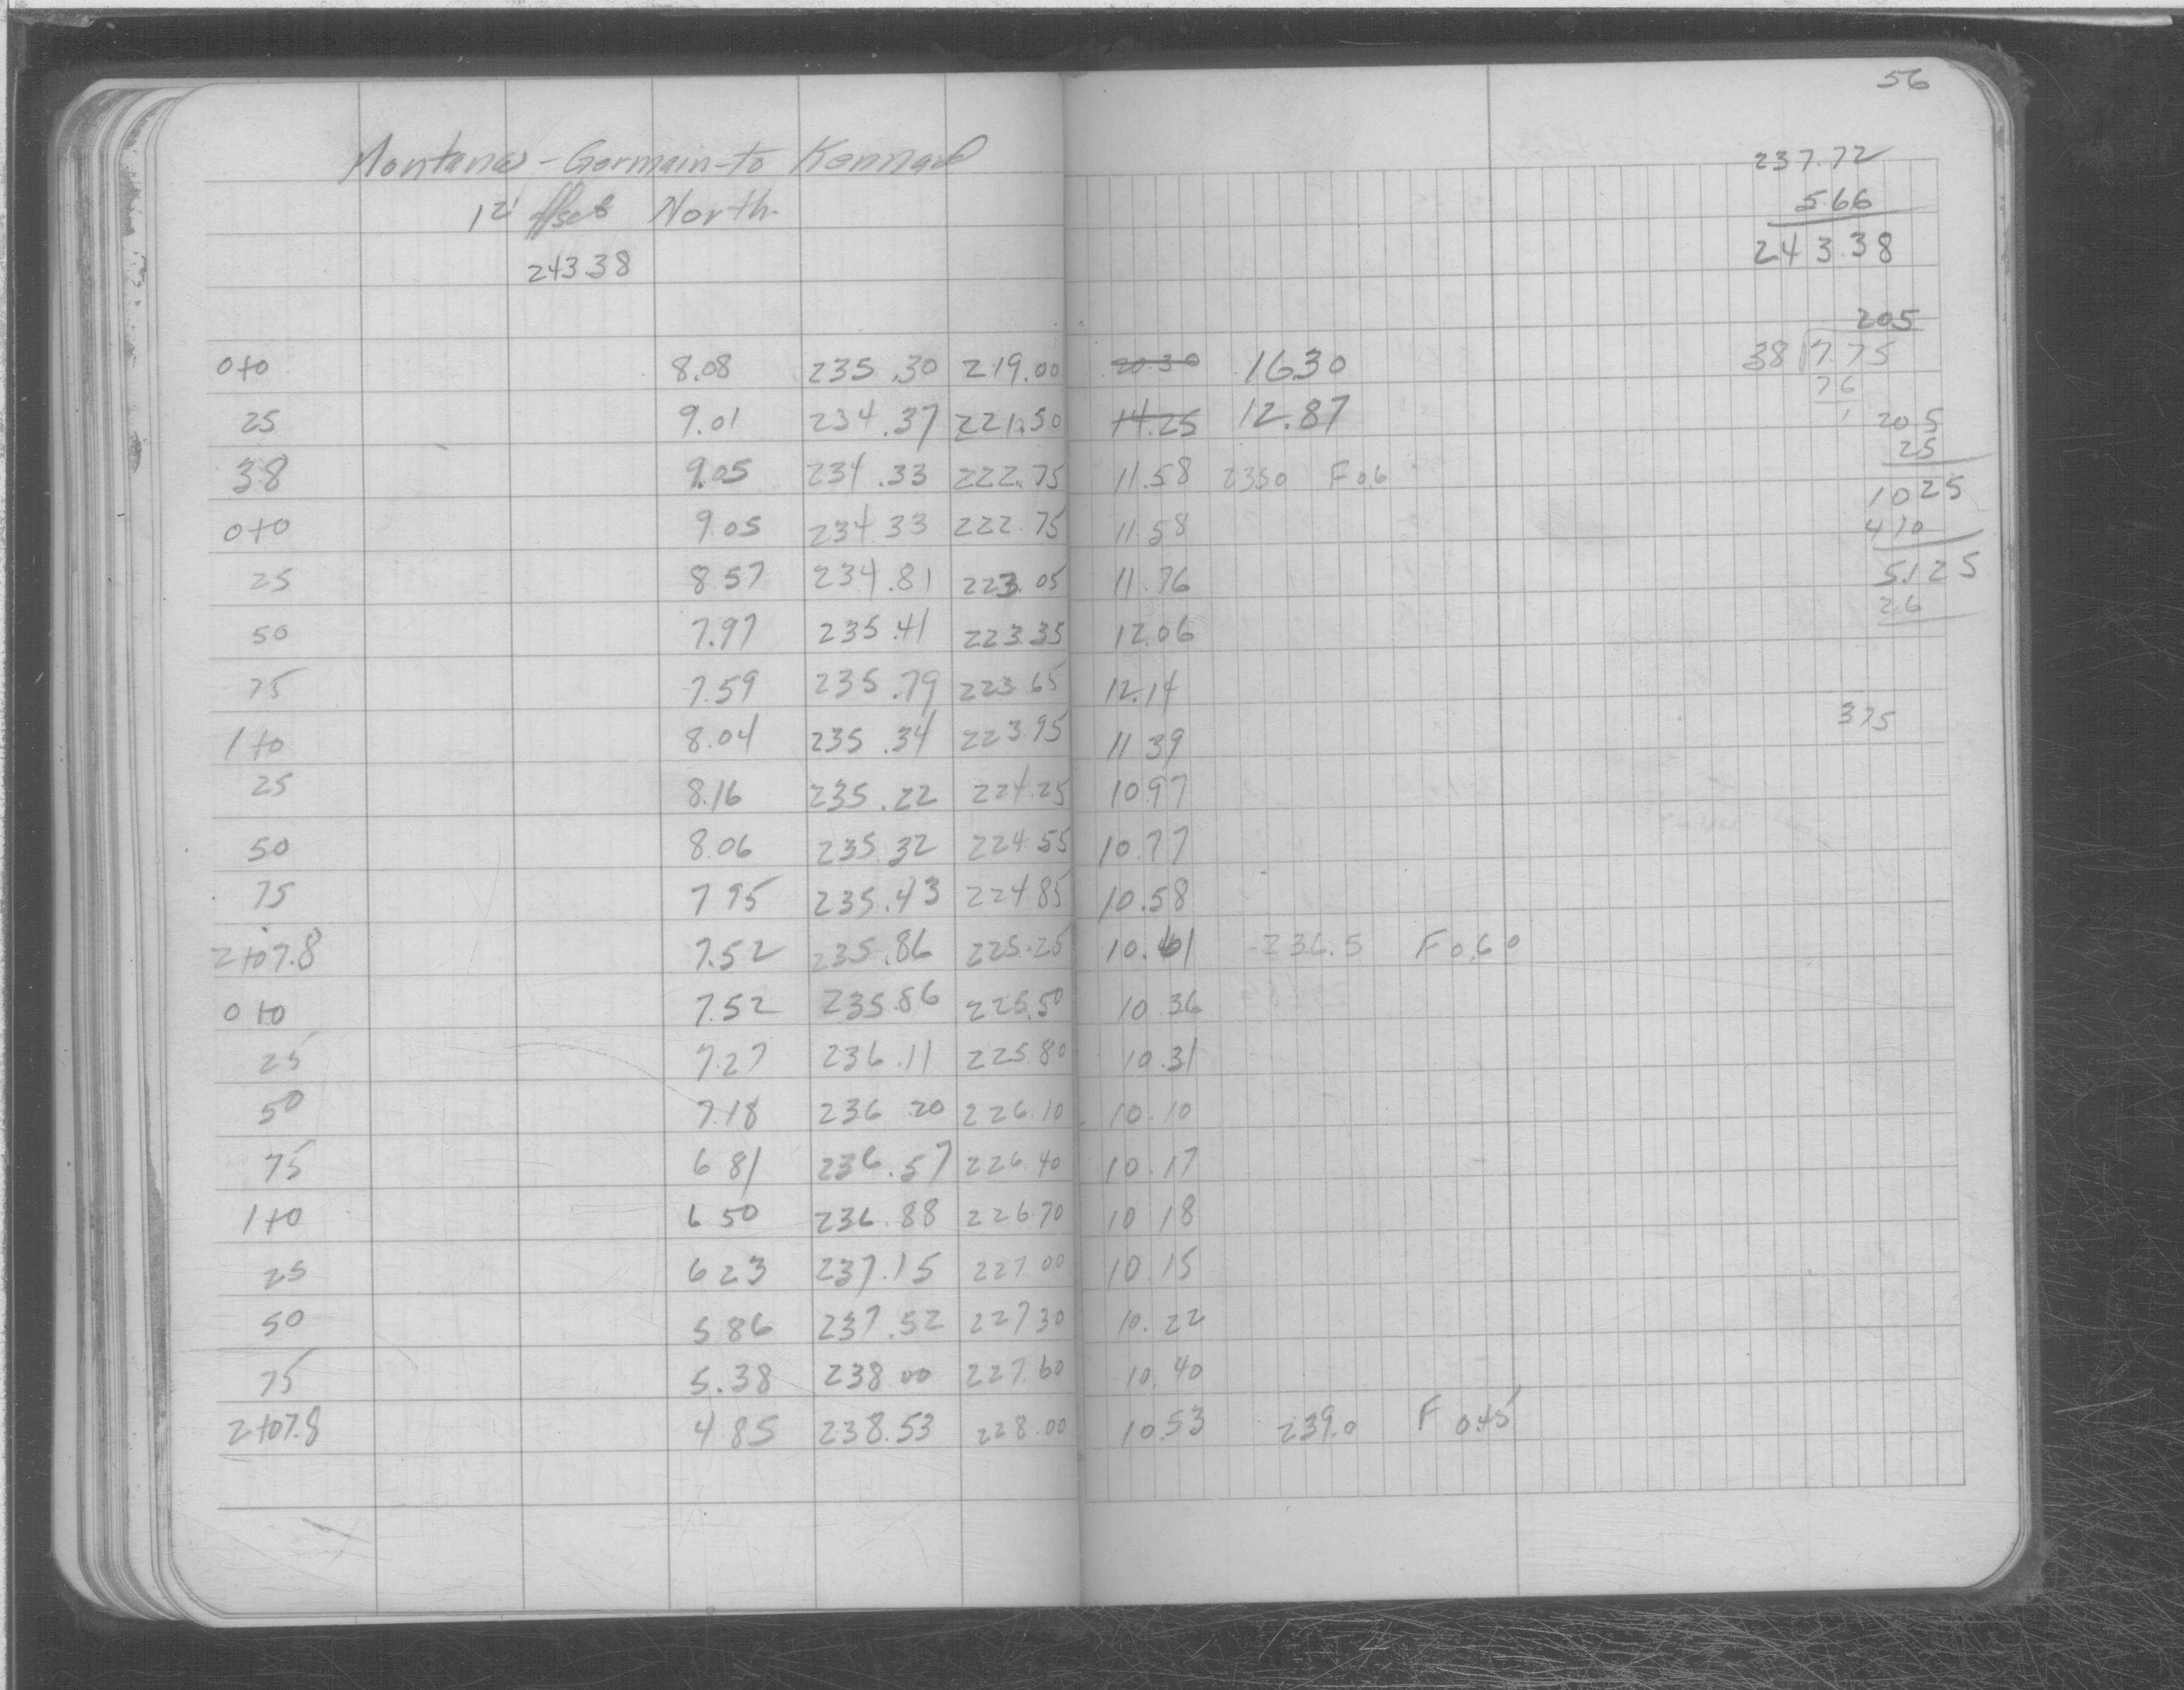 56
Montana - Germain - to Kennard
12' offset North
243.38
0+0 8.08 235.30 219.00 20.30 16.30
25 9.01 234.37 221.50 14.25 12.87
38 9.05 234.33 222.75 11.58 235.0 F 0.6
0+0 9.05 234.33 222.75 11.58
25 8.57 234.81 223.05 11.76
50 7.97 235.41 223.35 12.06
75 7.59 235.79 223.65 12.14
1+0 8.04 235.34 223.95 11 39
25 8.16 235.22 224.25 10.97
50 8.06 235.32 224.55 10.77
75 7 95 235.43 224.85 10.58
2+07.8 7.52 235.86 225.25 10.61 -236.5 F 0.60
0+0 7.52 235.86 225.50 10.36
25 7.27 236.11 225.80 10.31
50 7.18 236 20 226.10 10.10
75 6 81 236.57 226.40 10.17
1+0 6 50 236.88 226.70 10 18
25 6 23 237.15 227 00 10.15
50 5 86 237.52 227 30 10.22
75 5.38 238 00 227.60 10.40
2+07.8 4 85 238.53 228.00 10.53 239.0 F 0.45
237.72
5.66
243.38
205
38 7.75
76
1
205
25
1025
410
5.125
26
375